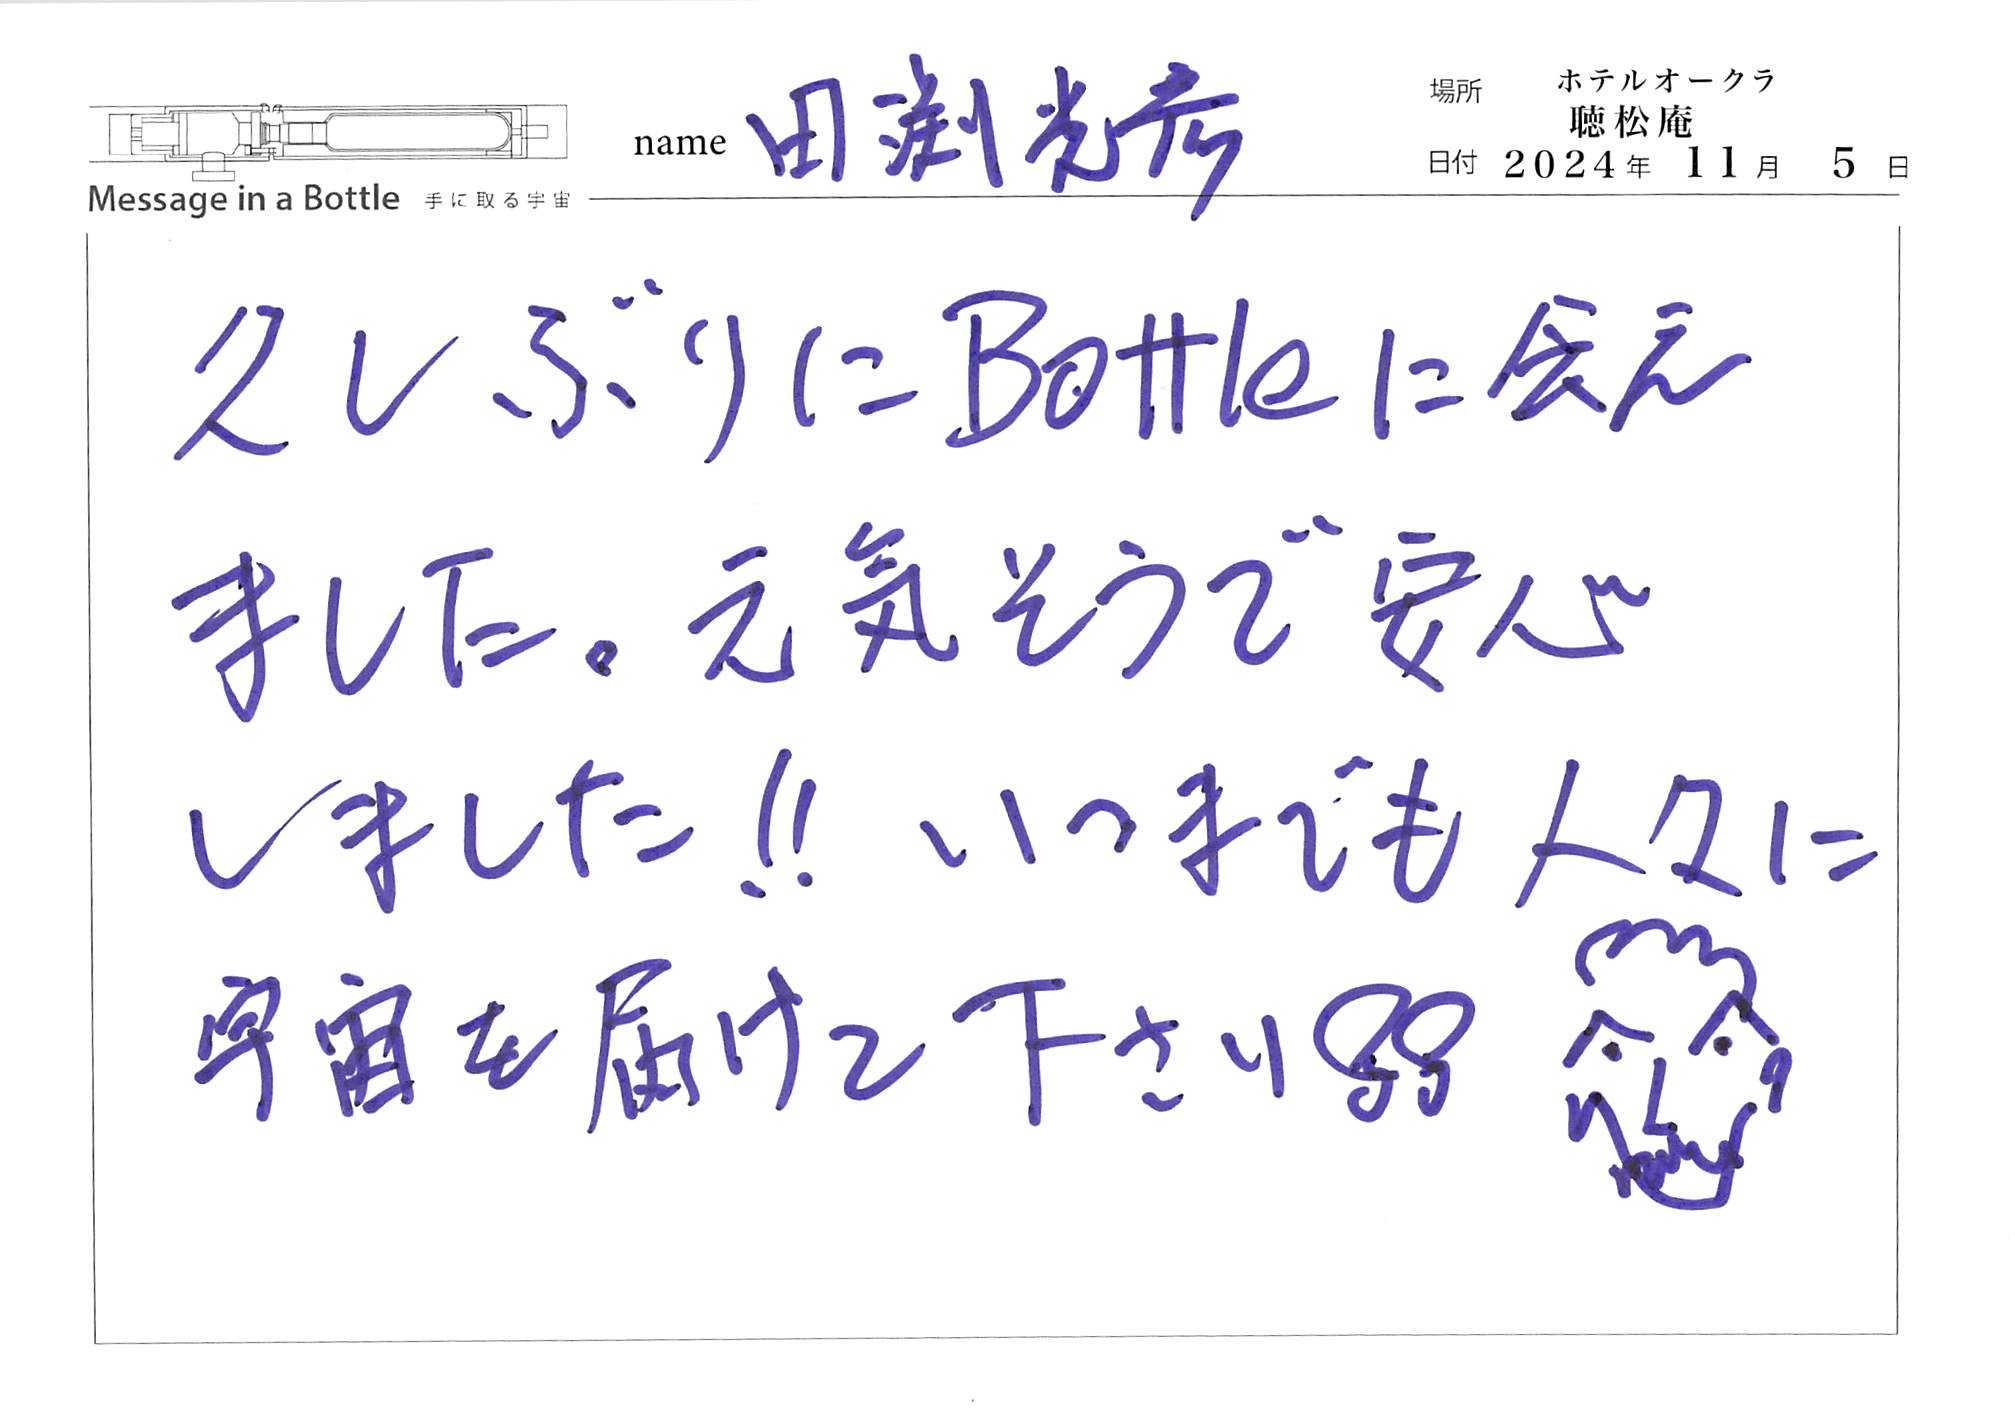 name 田渕光彦
場所 ホテルオークラ
聴松庵
日付 2024年 11月 5日
Message in a Bottle 手に取る宇宙
久しぶりにBottleに会え
ました。元気そうで安心
しました!! いつまでも人々に
宇宙を届けて下さい!!